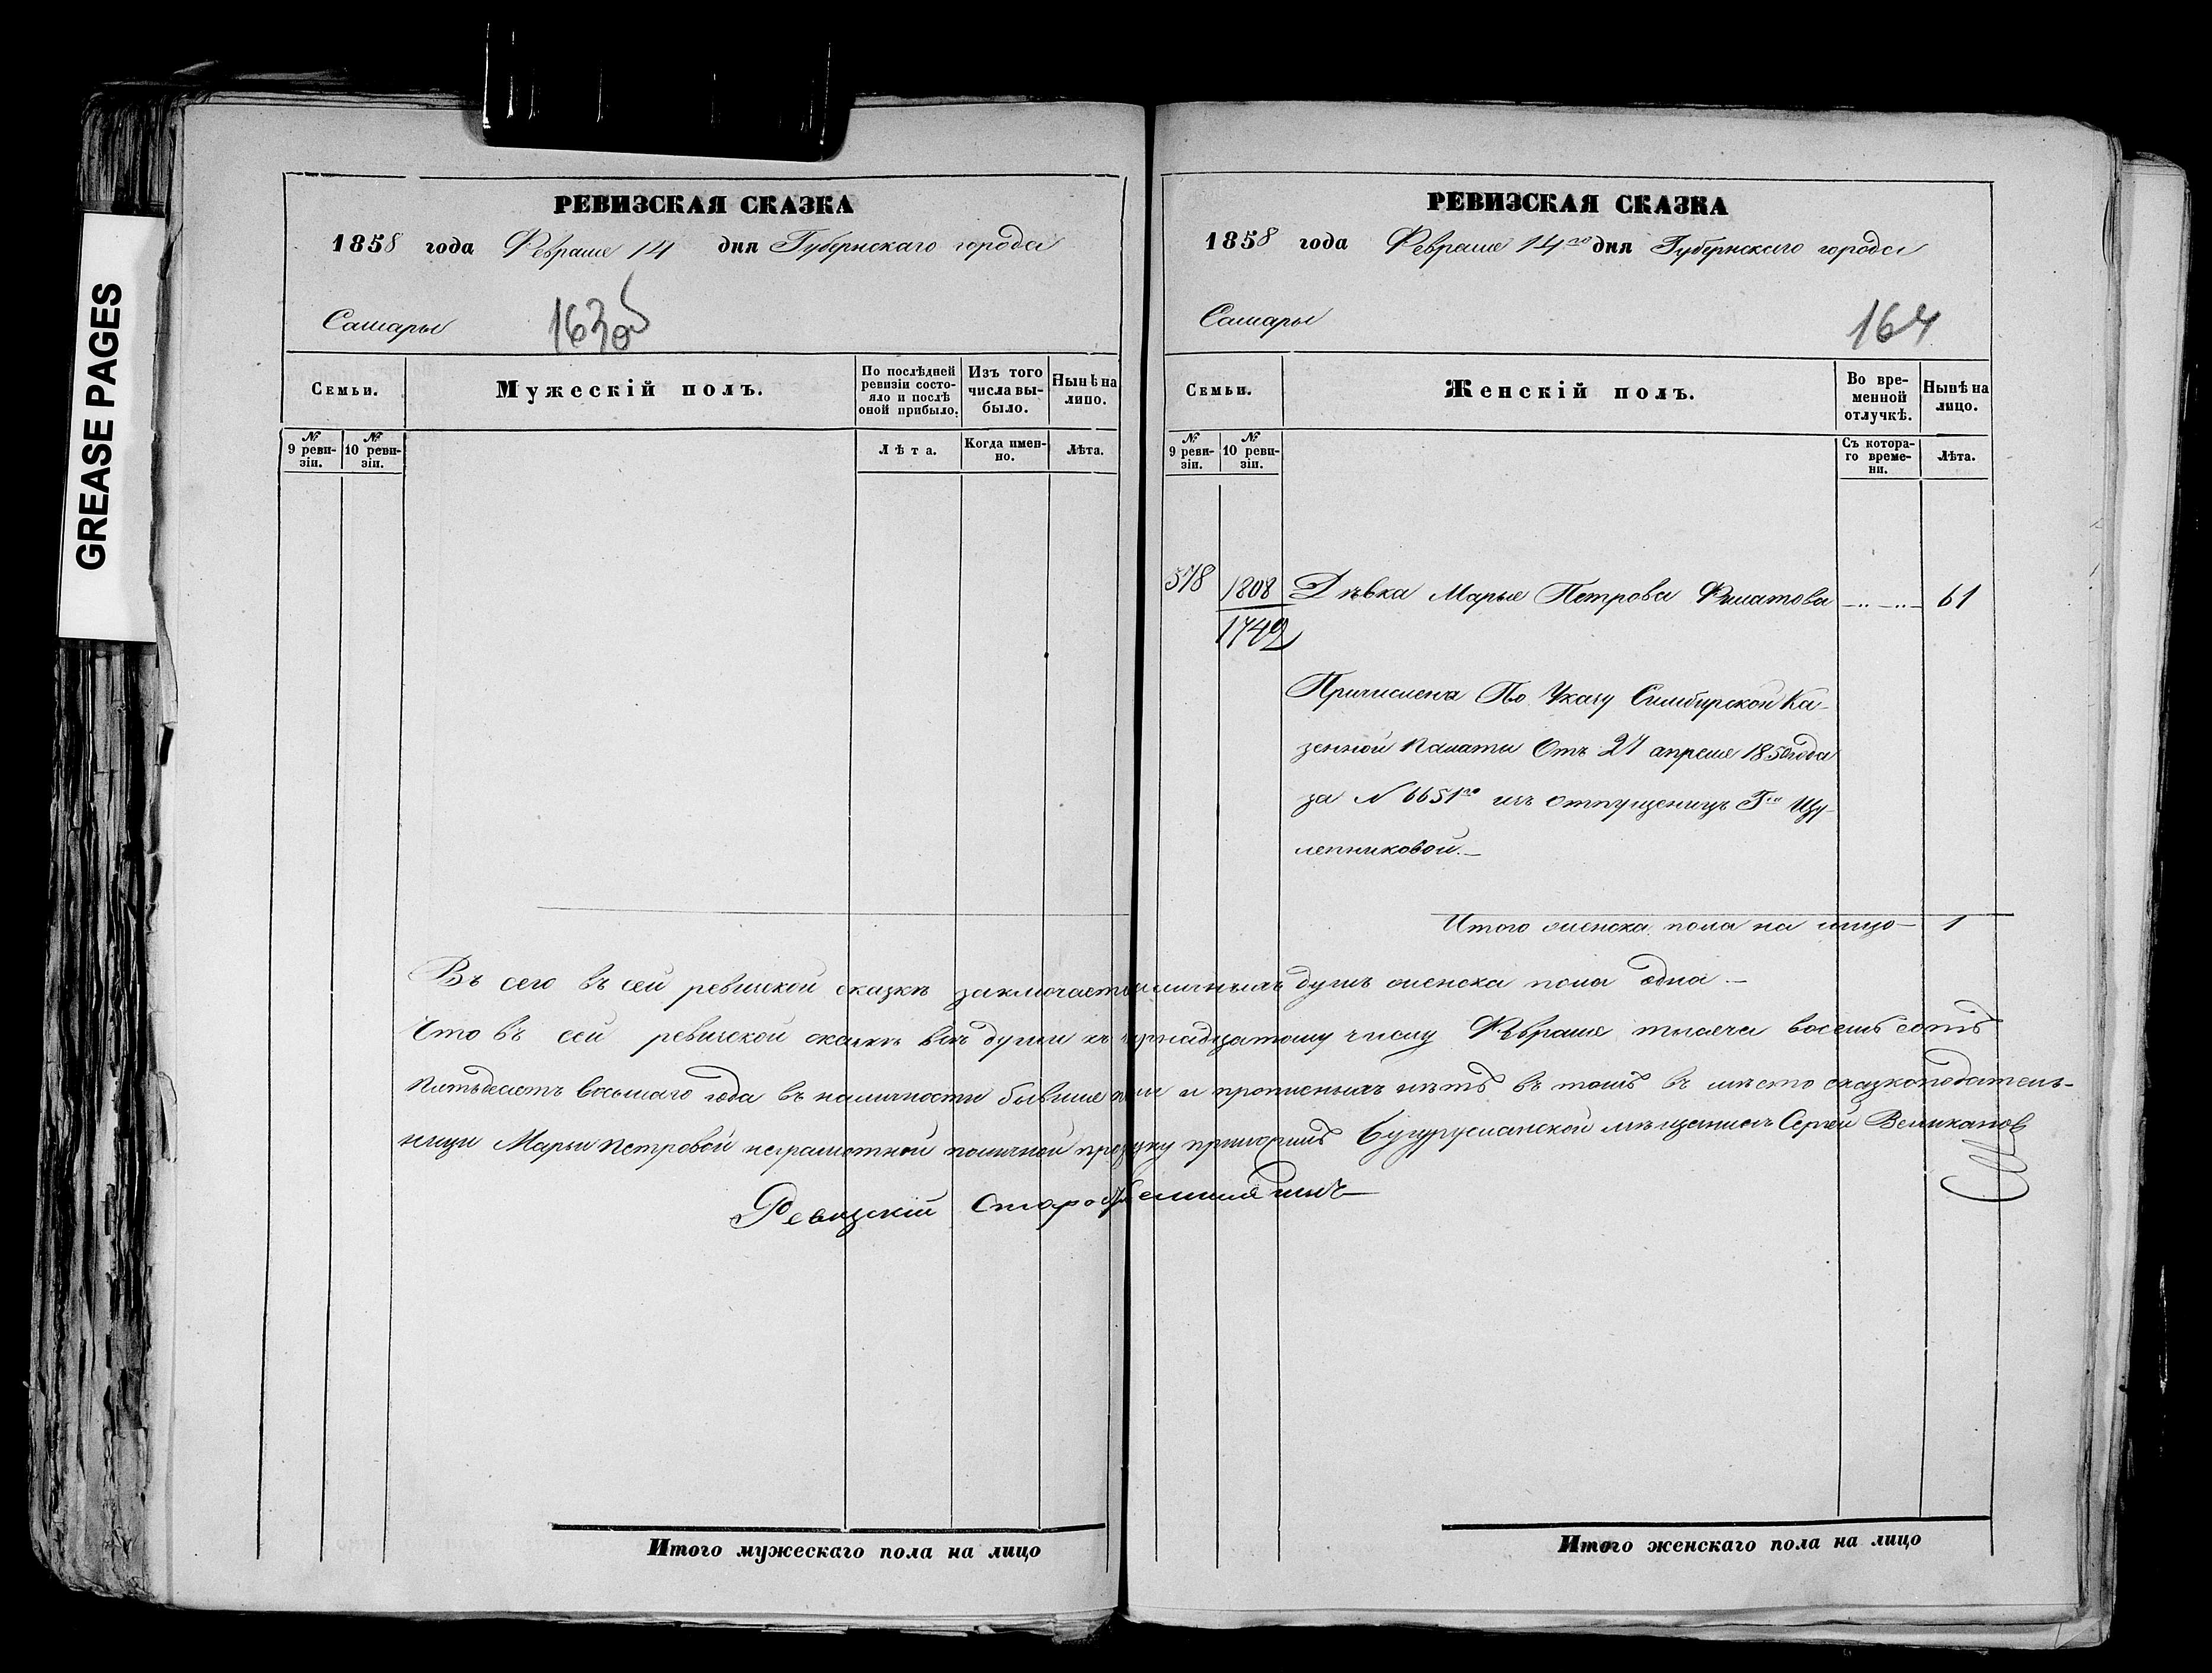 GREASE PAGES
РЕВИЗСКАЯ СКАЗКА
1858 года Февраля 14 дня Губернскаго города
Самары
163об
Семьи.
Мужескій полъ.
По послѣдней ревизіи состояло и послѣ оной прибыло.
Изъ того числа выбыло.
Нынѣ на лицо.
№ 9 ревизіи.
№ 10 ревизіи.
Лѣта.
Когда именно.
Лѣта.
Итого мужескаго пола на лицо
РЕВИЗСКАЯ СКАЗКА
1858 года Февраля 14го дня Губернскаго города
Самары
164
Семьи.
Женскій полъ.
Во временной отлучкѣ.
Нынѣ на лицо.
№ 9 ревизіи.
№ 10 ревизіи.
Съ котораго времени.
Лѣта.
578 1808 Дѣвка Марья Петрова Филатова 61
1749
Причислена По Указу Симбирской Ка-
зенной Палаты Отъ 27 апреля 1850 года
за № 6651го изъ отпущеницъ Гжи
лепниковой.
Итого женска пола на лицо 1
Въ сего въ сей ревизской сказкѣ заключается наличныхъ душъ женска пола одна.
Что въ сей ревизской сказкѣ всѣ души къ числу Февраля тысяча восемь сотъ
пятьдесятъ восьмаго года въ наличности бывшие и прописныхъ нѣтъ въ томъ в место сказкоподатель-
ницы Марьи Петровой неграмотной по личной прозбу Бугурусланской мѣщанинъ Сергей Великанов
Ревизскій Староста
Итого женскаго пола на лицо